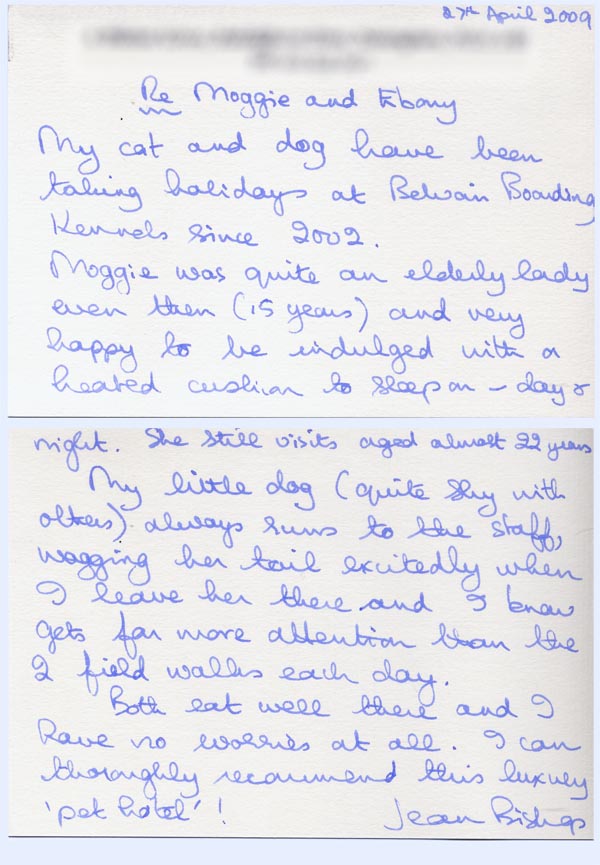 27th April 2009
Re Moggie and Ebony
My cat and dog have been
taking holidays at Belwain Boarding
Kennels since 2002.
Moggie was quite an elderly lady
even then (15 years) and very
happy to be indulged with a
heated cushion to sleep on – day &
night. She still visits aged almost 22 years
My little dog (quite shy with
others) always runs to the staff,
wagging her tail excitedly when
I leave her there and I know
gets far more attention than the
2 field walks each day.
Both eat well there and I
have no worries at all. I can
thoroughly recommend this luxury
'pet hotel'! Jean Bishop